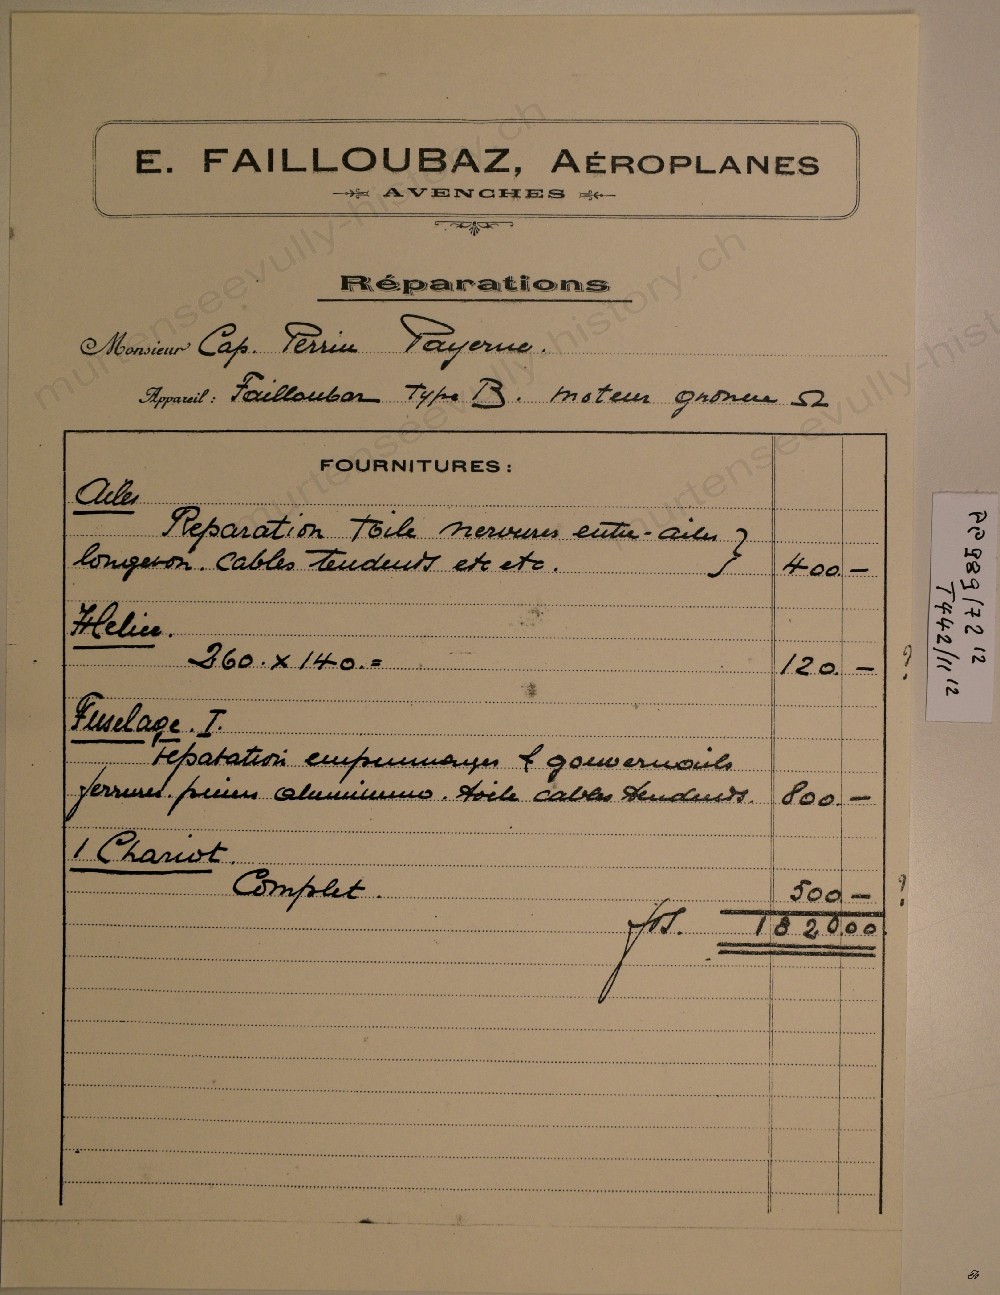 E. FAILLOUBAZ, AÉROPLANES
AVENCHES
Réparations
Monsieur Cap. Perrin Payerne.
Appareil: Failloubaz type B. moteur gnome Ω
FOURNITURES:
Ailes
Reparation toile nervures entre-ailes
longeron. cables tendeurs etc etc. 400.—
Helice.
260. x 140.= 120.— ?
Fuselage. I.
reparation empennages & gouvernails
ferrures. pieces aluminium. toile cables tendeurs. 800.—
1 Chariot.
Complet. 500.— ?
frs. 182000.
murtenseevully-history.ch
murtenseevully-history.ch
murtenseevully-history.ch